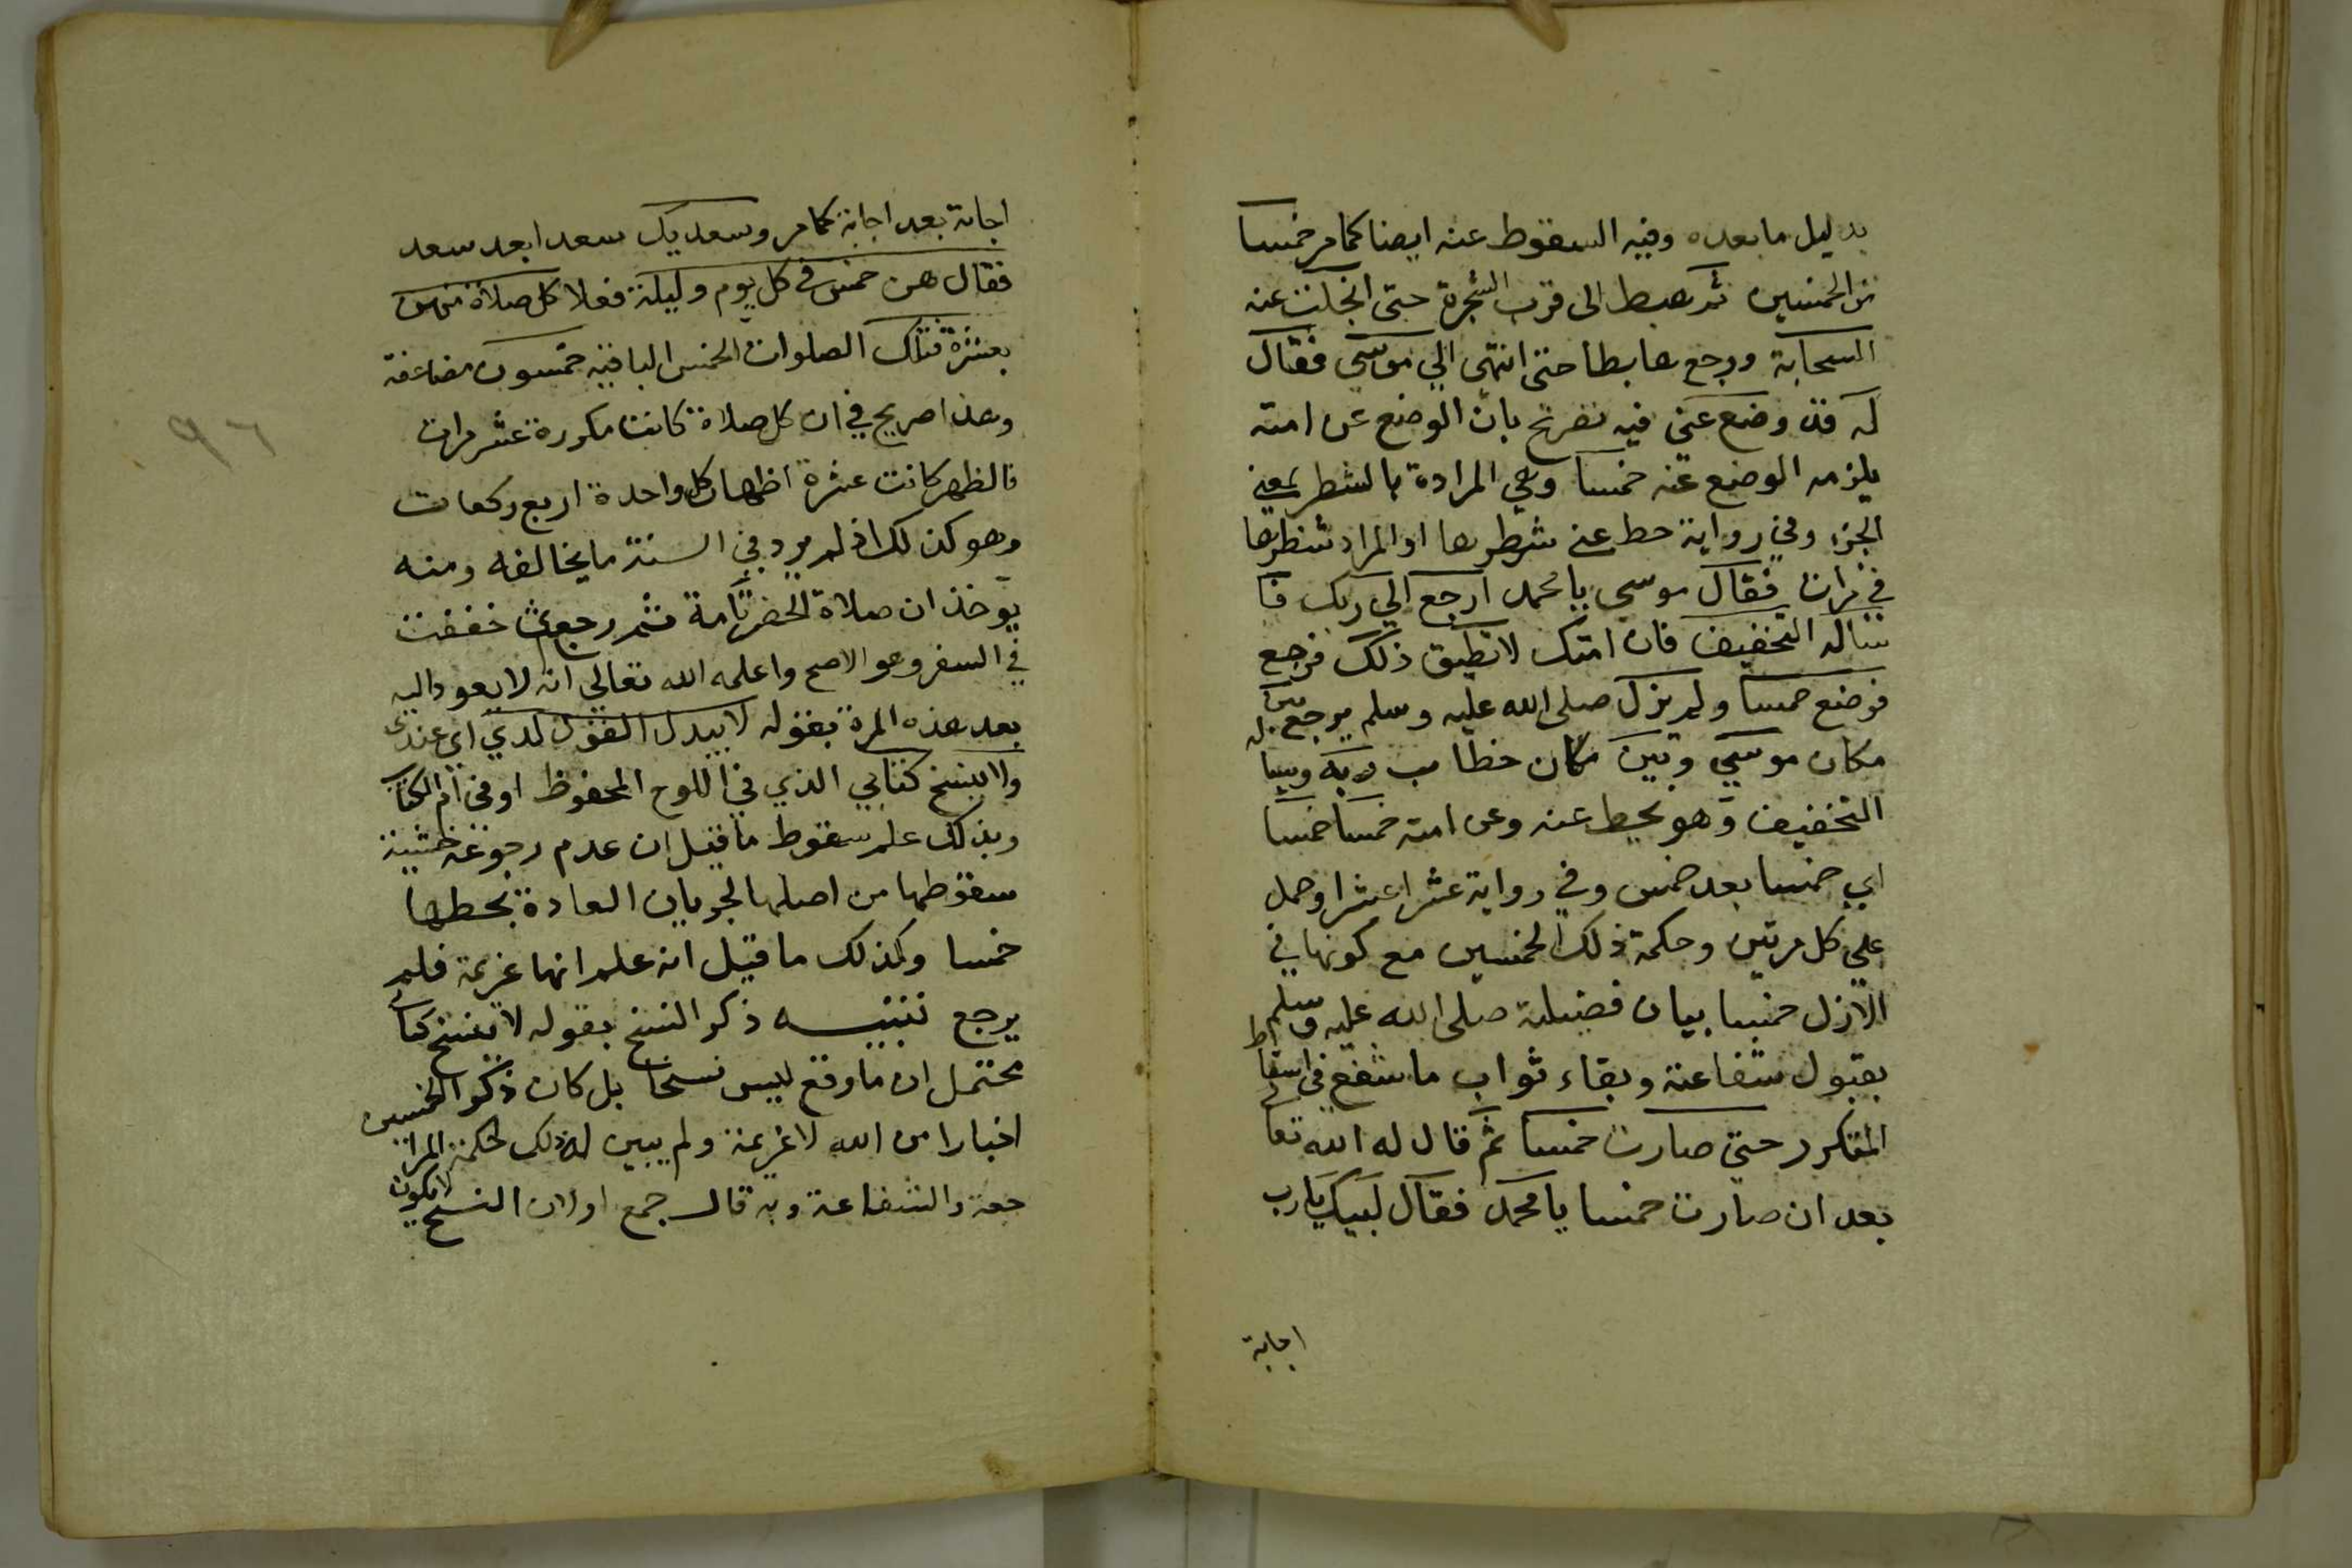 بدليل ما بعده وفيه السقوط عنه ايضا كما مر خمسا
من الخمسين ثم هبط الى قرب الشجرة حتى انجلت عنه
السحابة ورجع هابطا حتى انتهى الي موسى فقال
له قد وضع عني فيه تصريح بان الوضع عن امته
يلزمه الوضع عنه خمسا وهي المرادة بالشطر بمعني
الجزء وفي رواية حط عني شطرها او المراد شطرها
في مرات فقال موسى يا محمد ارجع الي ربك فا
ساله التخفيف فان امتك لا تطيق ذلك فرجع
فوضع خمسا ولم يزل صلى الله عليه وسلم يرجع بين
مكان موسي وبين مكان خطاب ربه له ويسا
التخفيف وهو يحط عنه وعن امته خمسا خمسا
اي خمسا بعد خمس وفي رواية عشرا عشرا وحمل
علي كل مرتين وحكمة ذلك الخمسين مع كونها في
الازل خمسا بيان فضيلة صلى الله عليه وسلم
بقبول شفاعته وبقاء ثواب ما شفع في اسقاط
المتكرر حتي صارت خمسا ثم قال له الله تعا
بعد ان صارت خمسا يا محمد فقال لبيك يا رب
اجابة
اجابة بعد اجابة كما مر وسعديك سعدا بعد سعد
فقال هن خمس في كل يوم وليلة فعلا كل صلاة منهن
بعشرة فتلك الصلوات الخمس الباقية خمسون مضاعفة
وهذا صريح في ان كل صلاة كانت مكررة عشر مرات
فالظهر كانت عشرة اظهار كل واحدة اربع ركعات
وهو كذلك اذ لم يرد في السنة ما يخالفه ومنه
يؤخذ ان صلاة الحضر تامة فثم رجعت خففت
في السفر وهو الاصح واعلمه الله تعالي انه لا يعود اليه
بعد هذه المرة بقوله لا يبدل القول لدي اي عندي
ولا ينسخ كتابي الذي في اللوح المحفوظ او في ام الكتاب
وبذلك علم سقوط ما قيل ان عدم رجوعه خشية
سقوطها من اصلها لجريان العادة بحطها
خمسا وكذلك ما قيل انه علم انها عزيمة فلم
يرجع تنبيه ذكر النسخ بقوله لا ينسخ كتابي
محتمل ان ما وقع ليس نسخا بل كان ذكر الخمسين
اخبارا من الله لا عزيمة ولم يبين له ذلك لحكمة المرا
جعة والشفاعة وبه قال جمع او لان النسخ لا يكون
٩٦